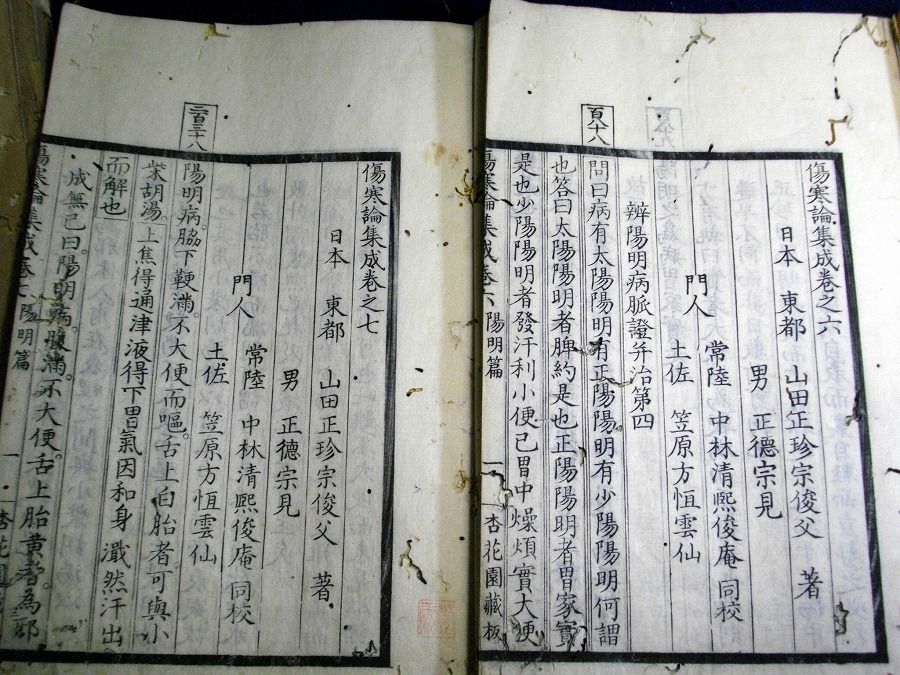 百八十
傷寒論集成卷之六
日本 東都 山田正珍宗俊父 著
男 正德宗見
常陸 中林清熙俊庵 同校
門人
土佐 笠原方恒雲仙
辨陽明病脈證并治第四
問曰病有太陽陽明有正陽陽明有少陽陽明何謂
也答曰太陽陽明者脾約是也正陽陽明者胃家實
是也少陽陽明者發汗利小便已胃中燥煩實大便
傷寒論集成卷六 陽明篇 一 杏花園藏板
二百三十八
傷寒論集成卷之七
日本 東都 山田正珍宗俊父 著
男 正德宗見
常陸 中林清熙俊庵 同校
門人
土佐 笠原方恒雲仙
陽明病。脇下鞕滿。不大便而嘔。舌上白胎者。可與小
柴胡湯上焦得通津液得下胃氣因和身濈然汗出
而解也
成無己曰。陽明病。腹滿。不大便。舌上胎黃者。為邪
傷寒論集成卷七 陽明篇 一 杏花園